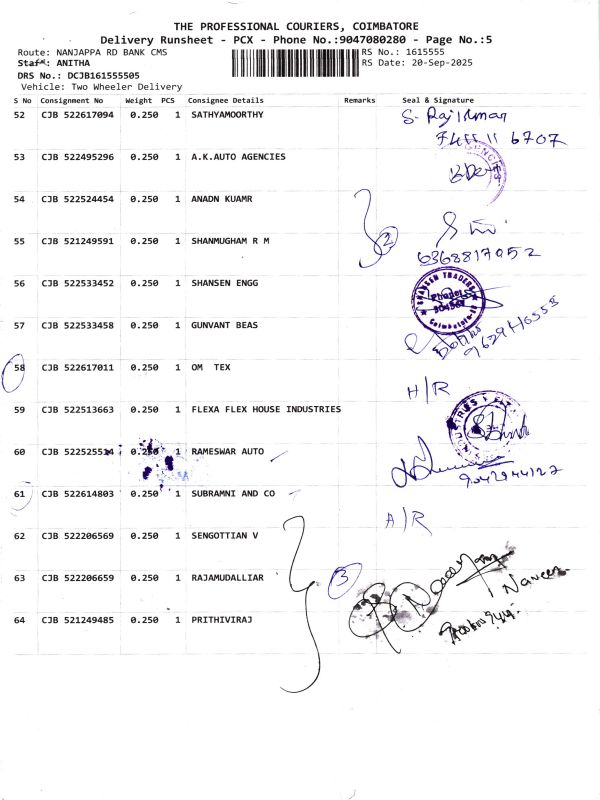 THE PROFESSIONAL COURIERS, COIMBATORE
Delivery Runsheet - PCX - Phone No.:9047080280 - Page No.:5
Route: NANJAPPA RD BANK CMS RS No.: 1615555
Staff: ANITHA RS Date: 20-Sep-2025
DRS No.: DCJB161555505
Vehicle: Two Wheeler Delivery
S No Consignment No Weight PCS Consignee Details Remarks Seal & Signature
52 CJB 522617094 0.250 1 SATHYAMOORTHY S. Rajkumar
6707
53 CJB 522495296 0.250 1 A.K.AUTO AGENCIES
54 CJB 522524454 0.250 1 ANADN KUAMR
2
55 CJB 521249591 0.250 1 SHANMUGHAM R M
6368817052
56 CJB 522533452 0.250 1 SHANSEN ENGG SHANSEN TRADERS
Phone:
Coimbatore
57 CJB 522533458 0.250 1 GUNVANT BEAS
58 CJB 522617011 0.250 1 OM TEX H/R
59 CJB 522513663 0.250 1 FLEXA FLEX HOUSE INDUSTRIES
60 CJB 522525514 0.250 1 RAMESWAR AUTO
9042944127
61 CJB 522614803 0.250 1 SUBRAMNI AND CO A/R
62 CJB 522206569 0.250 1 SENGOTTIAN V
63 CJB 522206659 0.250 1 RAJAMUDALLIAR 3 Naveen
64 CJB 521249485 0.250 1 PRITHIVIRAJ